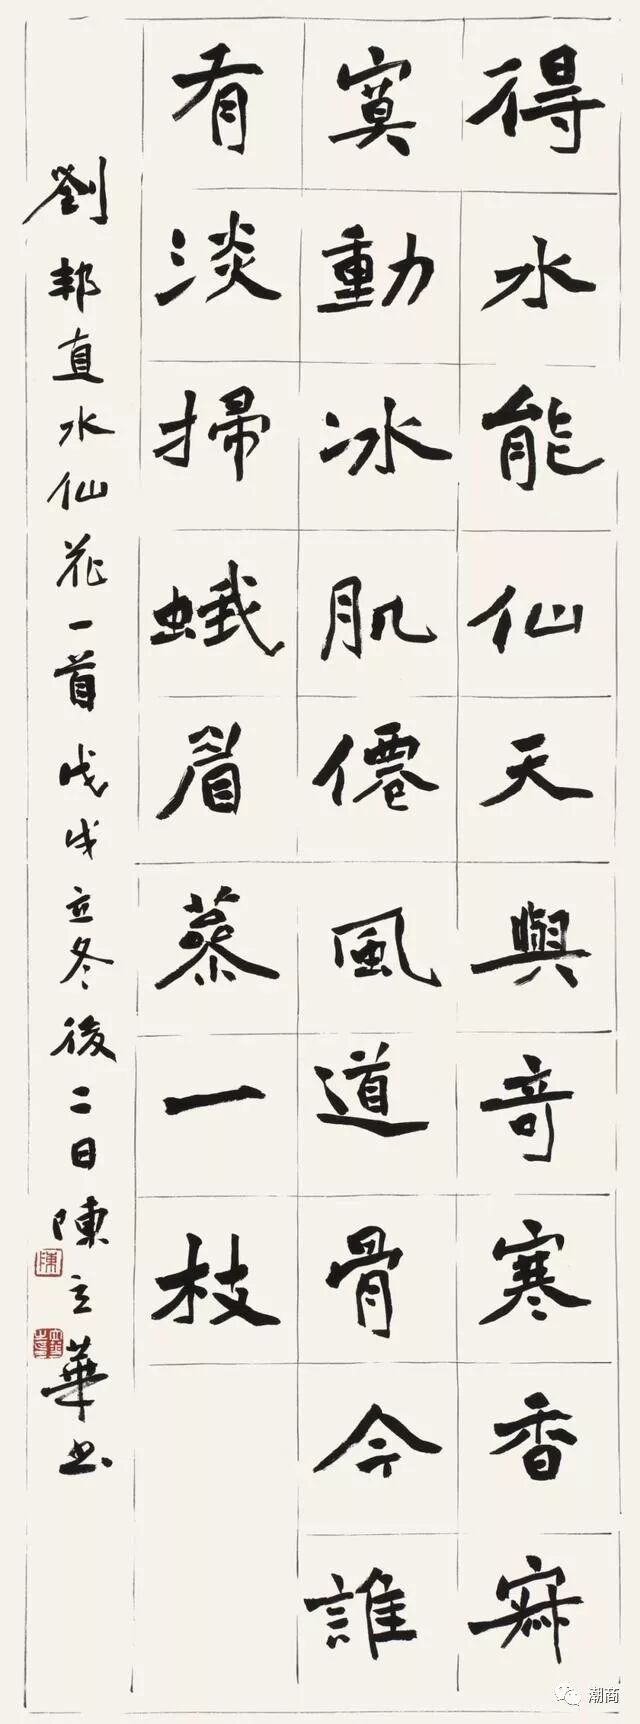 得水能仙天與奇寒香寂
寞動冰肌僊風道骨今誰
有淡掃蛾眉蔘一枝
劉邦直水仙花一首戊戌立冬後二日陳立華书
陳
潮商